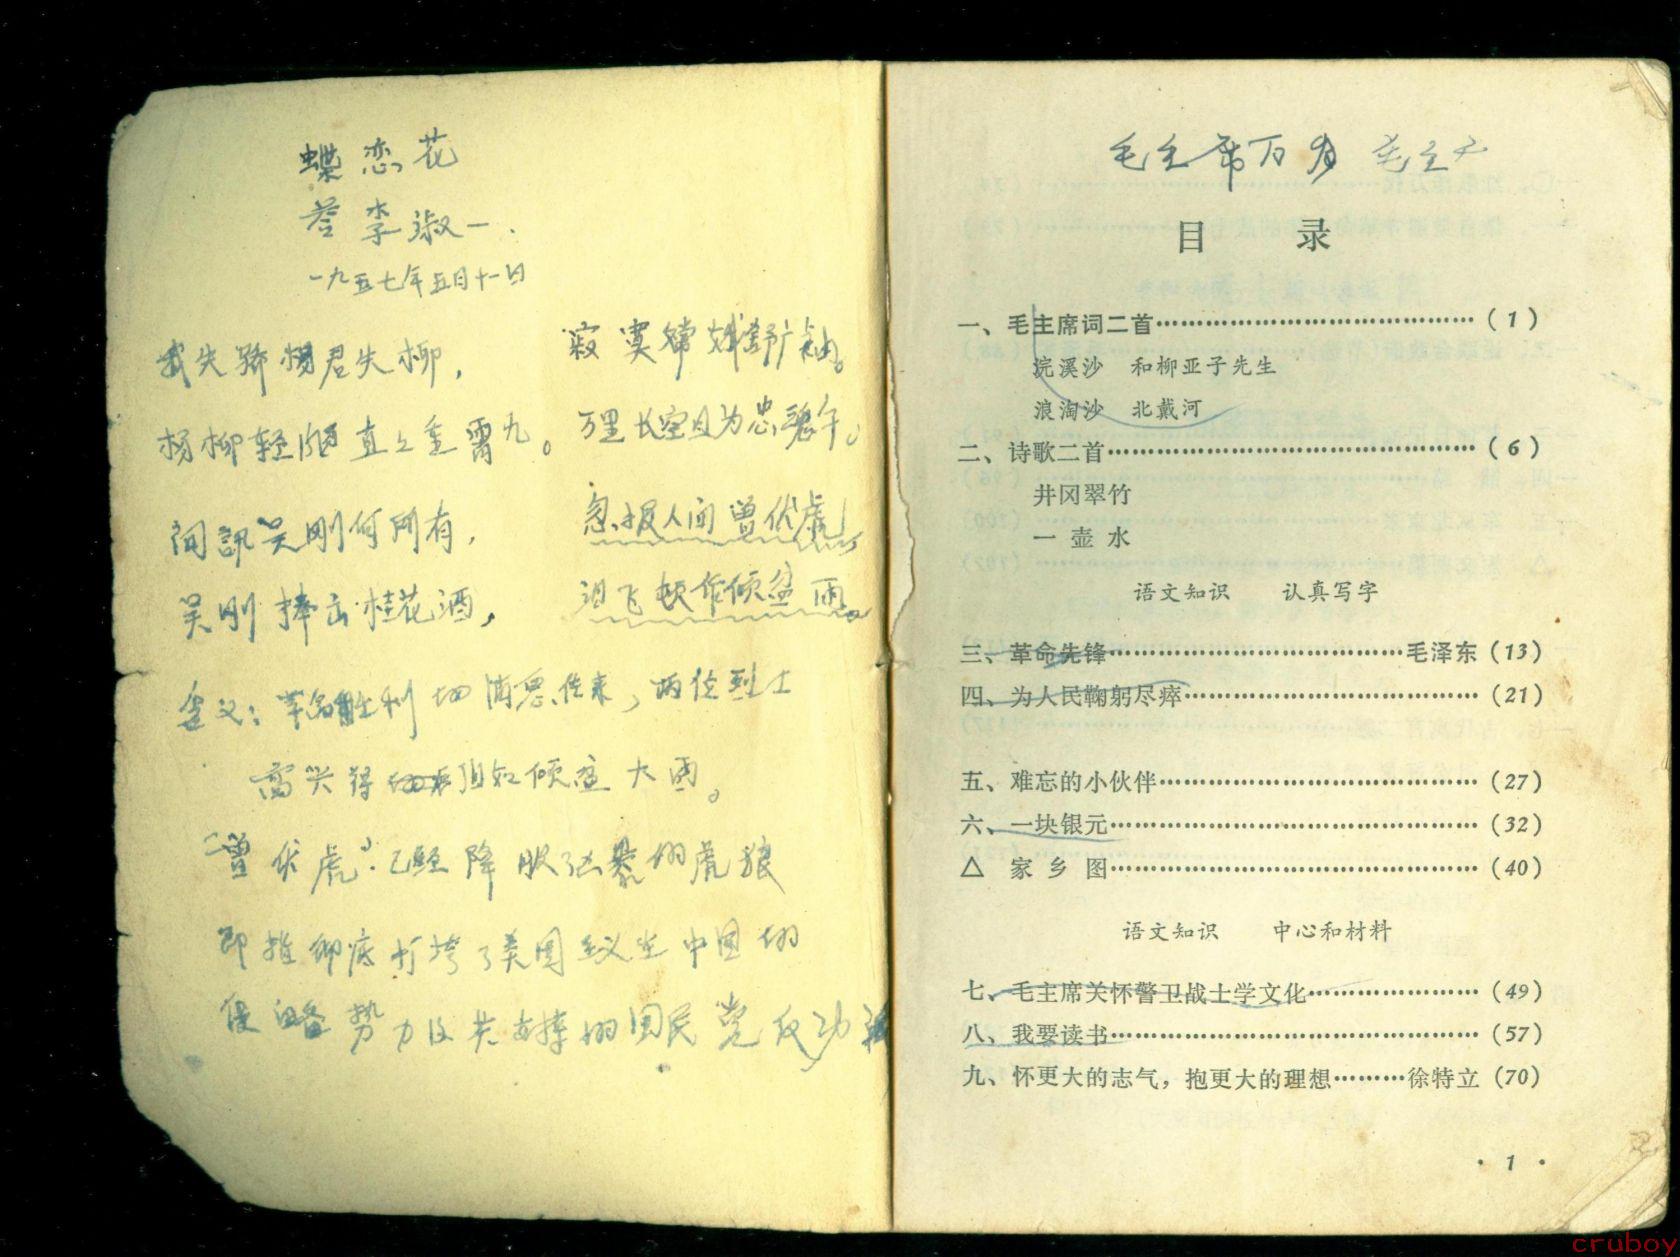 蝶恋花
答李淑一.
一九五七年五月十一日
我失骄杨君失柳,
杨柳轻飏直上重霄九。
问讯吴刚何所有,
吴刚捧出桂花酒,
寂寞嫦娥舒广袖。
万里长空且为忠魂午。
急报人间曾伏虎,
泪飞顿作倾盆雨。
含义:革命胜利的消息传来,两位烈士
高兴得 泪如倾盆大雨。
“曾伏虎”:已经降服了凶暴的虎狼
即推 打垮了美国主义在中国的
侵略势力及其支撑的国民党反动
毛主席万岁 毛主
目 录
一、毛主席词二首……(1)
浣溪沙 和柳亚子先生
浪淘沙 北戴河
二、诗歌二首……(6)
井冈翠竹
一壶水
语文知识 认真写字
三、革命先锋……毛泽东(13)
四、为人民鞠躬尽瘁……(21)
五、难忘的小伙伴……(27)
六、一块银元……(32)
△ 家乡图……(40)
语文知识 中心和材料
七、毛主席关怀警卫战士学文化……(49)
八、我要读书……(57)
九、怀更大的志气，抱更大的理想……徐特立(70)
· 1 ·
cruboy